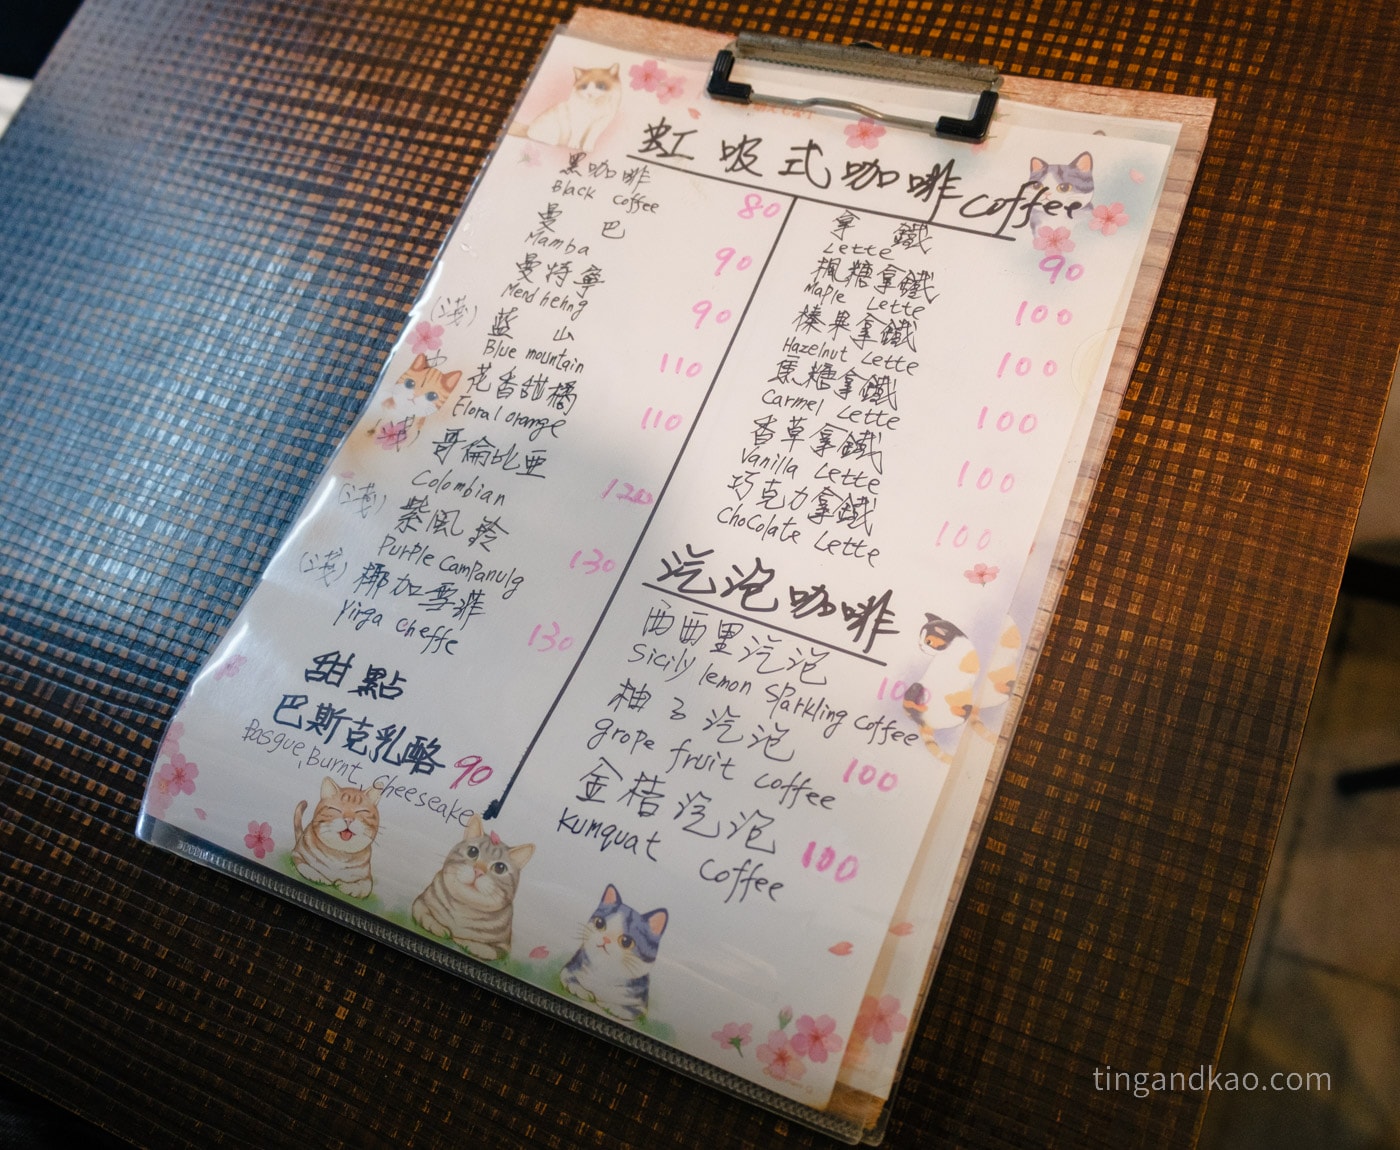 虹吸式咖啡 coffee
黑咖啡 80
Black coffee
曼巴 90
Mamba
曼特寧 90
Mend hehng
(淺) 藍山 110
Blue mountain
中 花香甜橘 110
Floral orange
哥倫比亞 120
Colombian
(淺) 紫風鈴 130
Purple Campanulg
(淺) 椰加雪菲 130
Yirga cheffe
甜點
巴斯克乳酪 90
Basgue Burnt Cheeseake
拿鐵 90
Lette
楓糖拿鐵 100
Maple Lette
榛果拿鐵 100
Hazelnut Lette
焦糖拿鐵 100
Carmel Lette
香草拿鐵 100
Vanilla Lette
巧克力拿鐵 100
Chocolate Lette
汽泡咖啡
西西里汽泡 100
Sicily lemon sparkling coffee
柚子汽泡 100
grope fruit coffee
金桔汽泡 100
Kumquat coffee
tingandkao.com